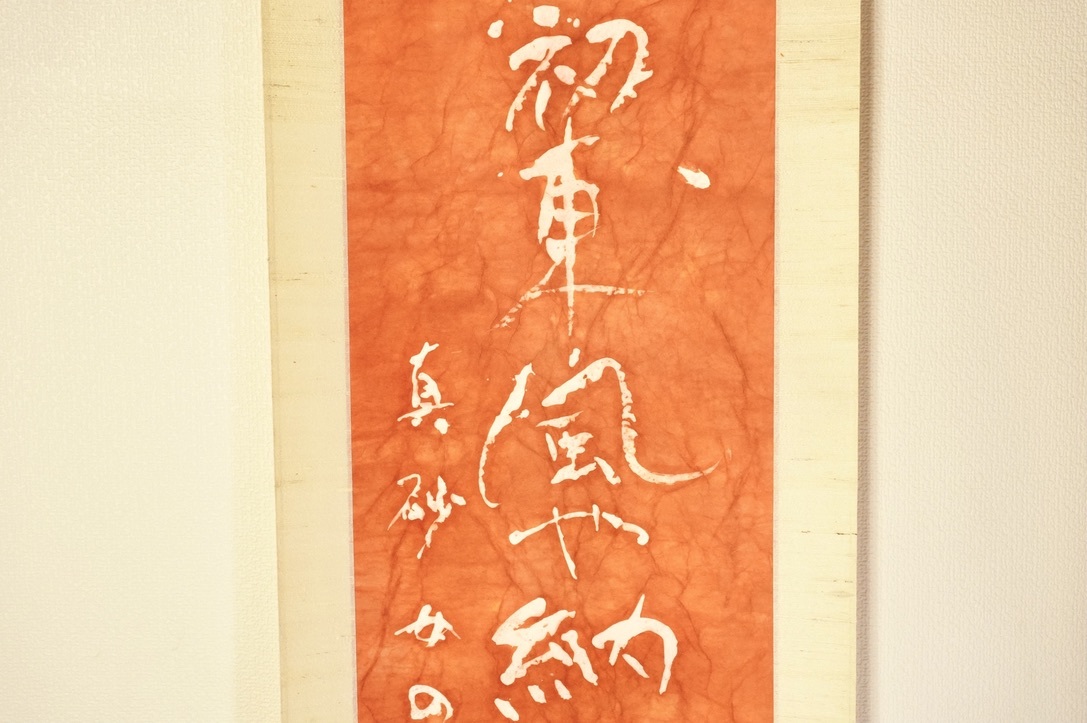 初東風や納
真砂女の